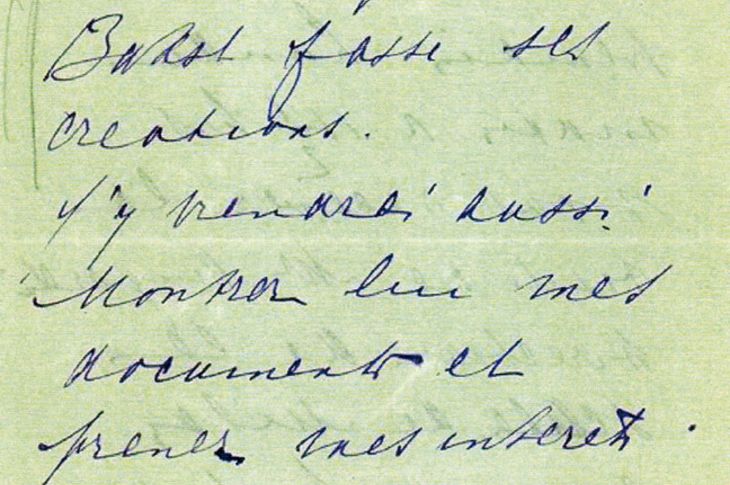 Bakst fasse ses
creations.
J'y viendrai aussi
Montrer lui mes
documents et
prenez mes interets.